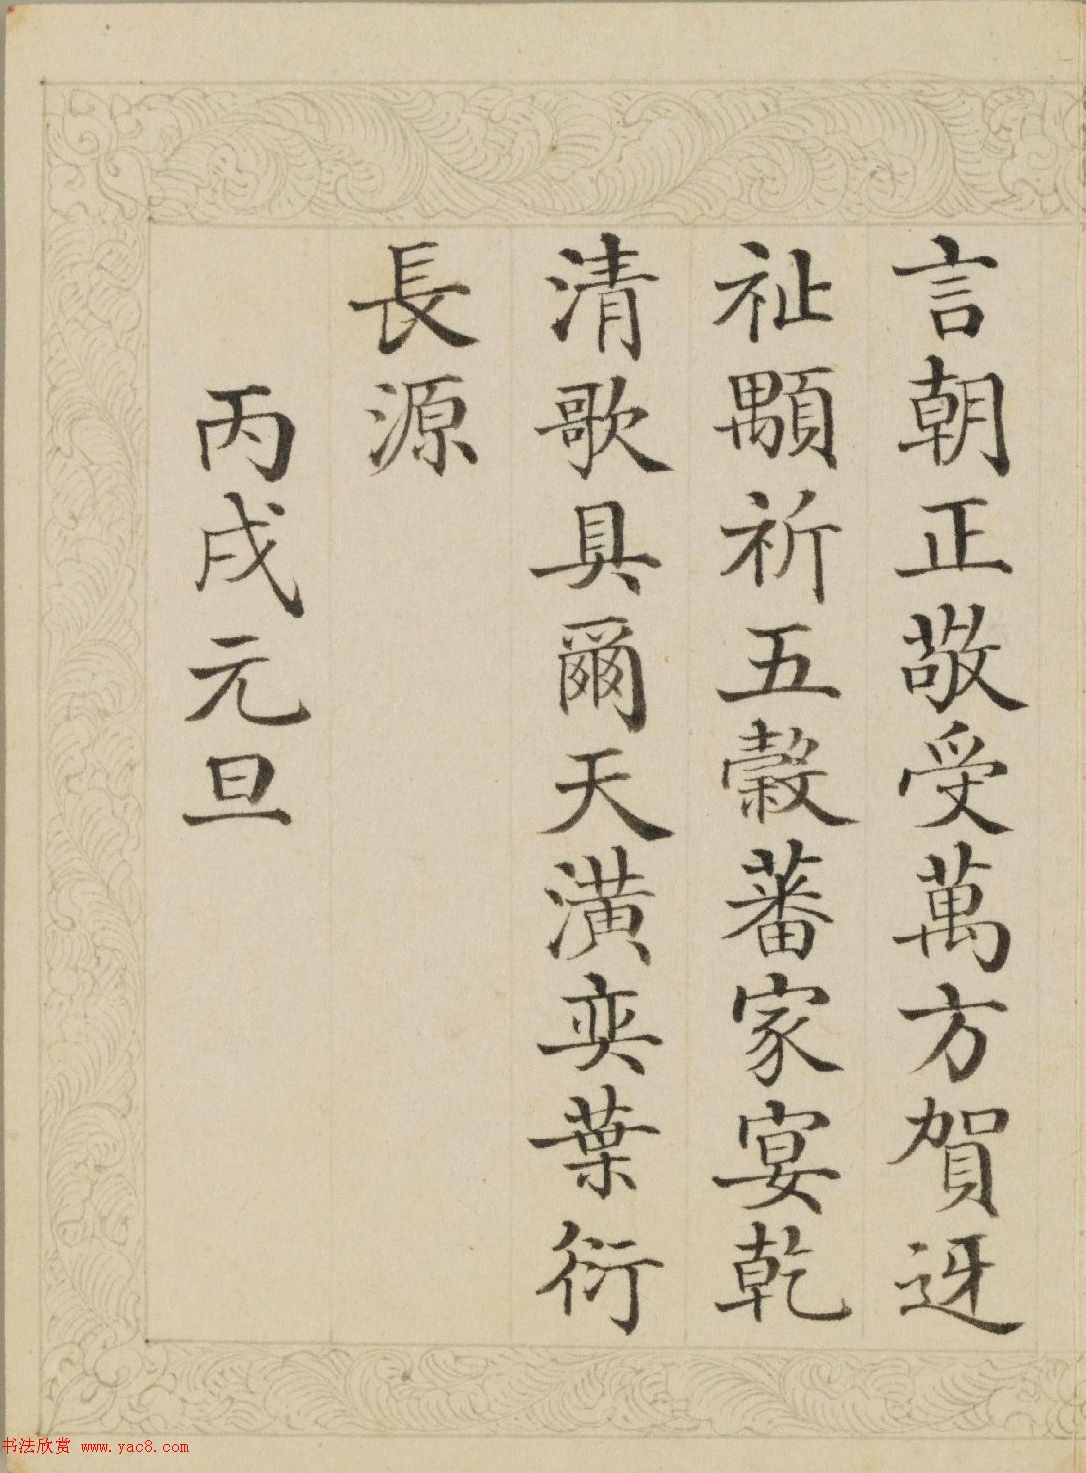 言朝正敬受萬方賀迓
祉顒祈五穀蕃家宴乾
清歌具爾天潢奕葉衍
長源
丙戌元旦
书法欣赏 www.yac8.com